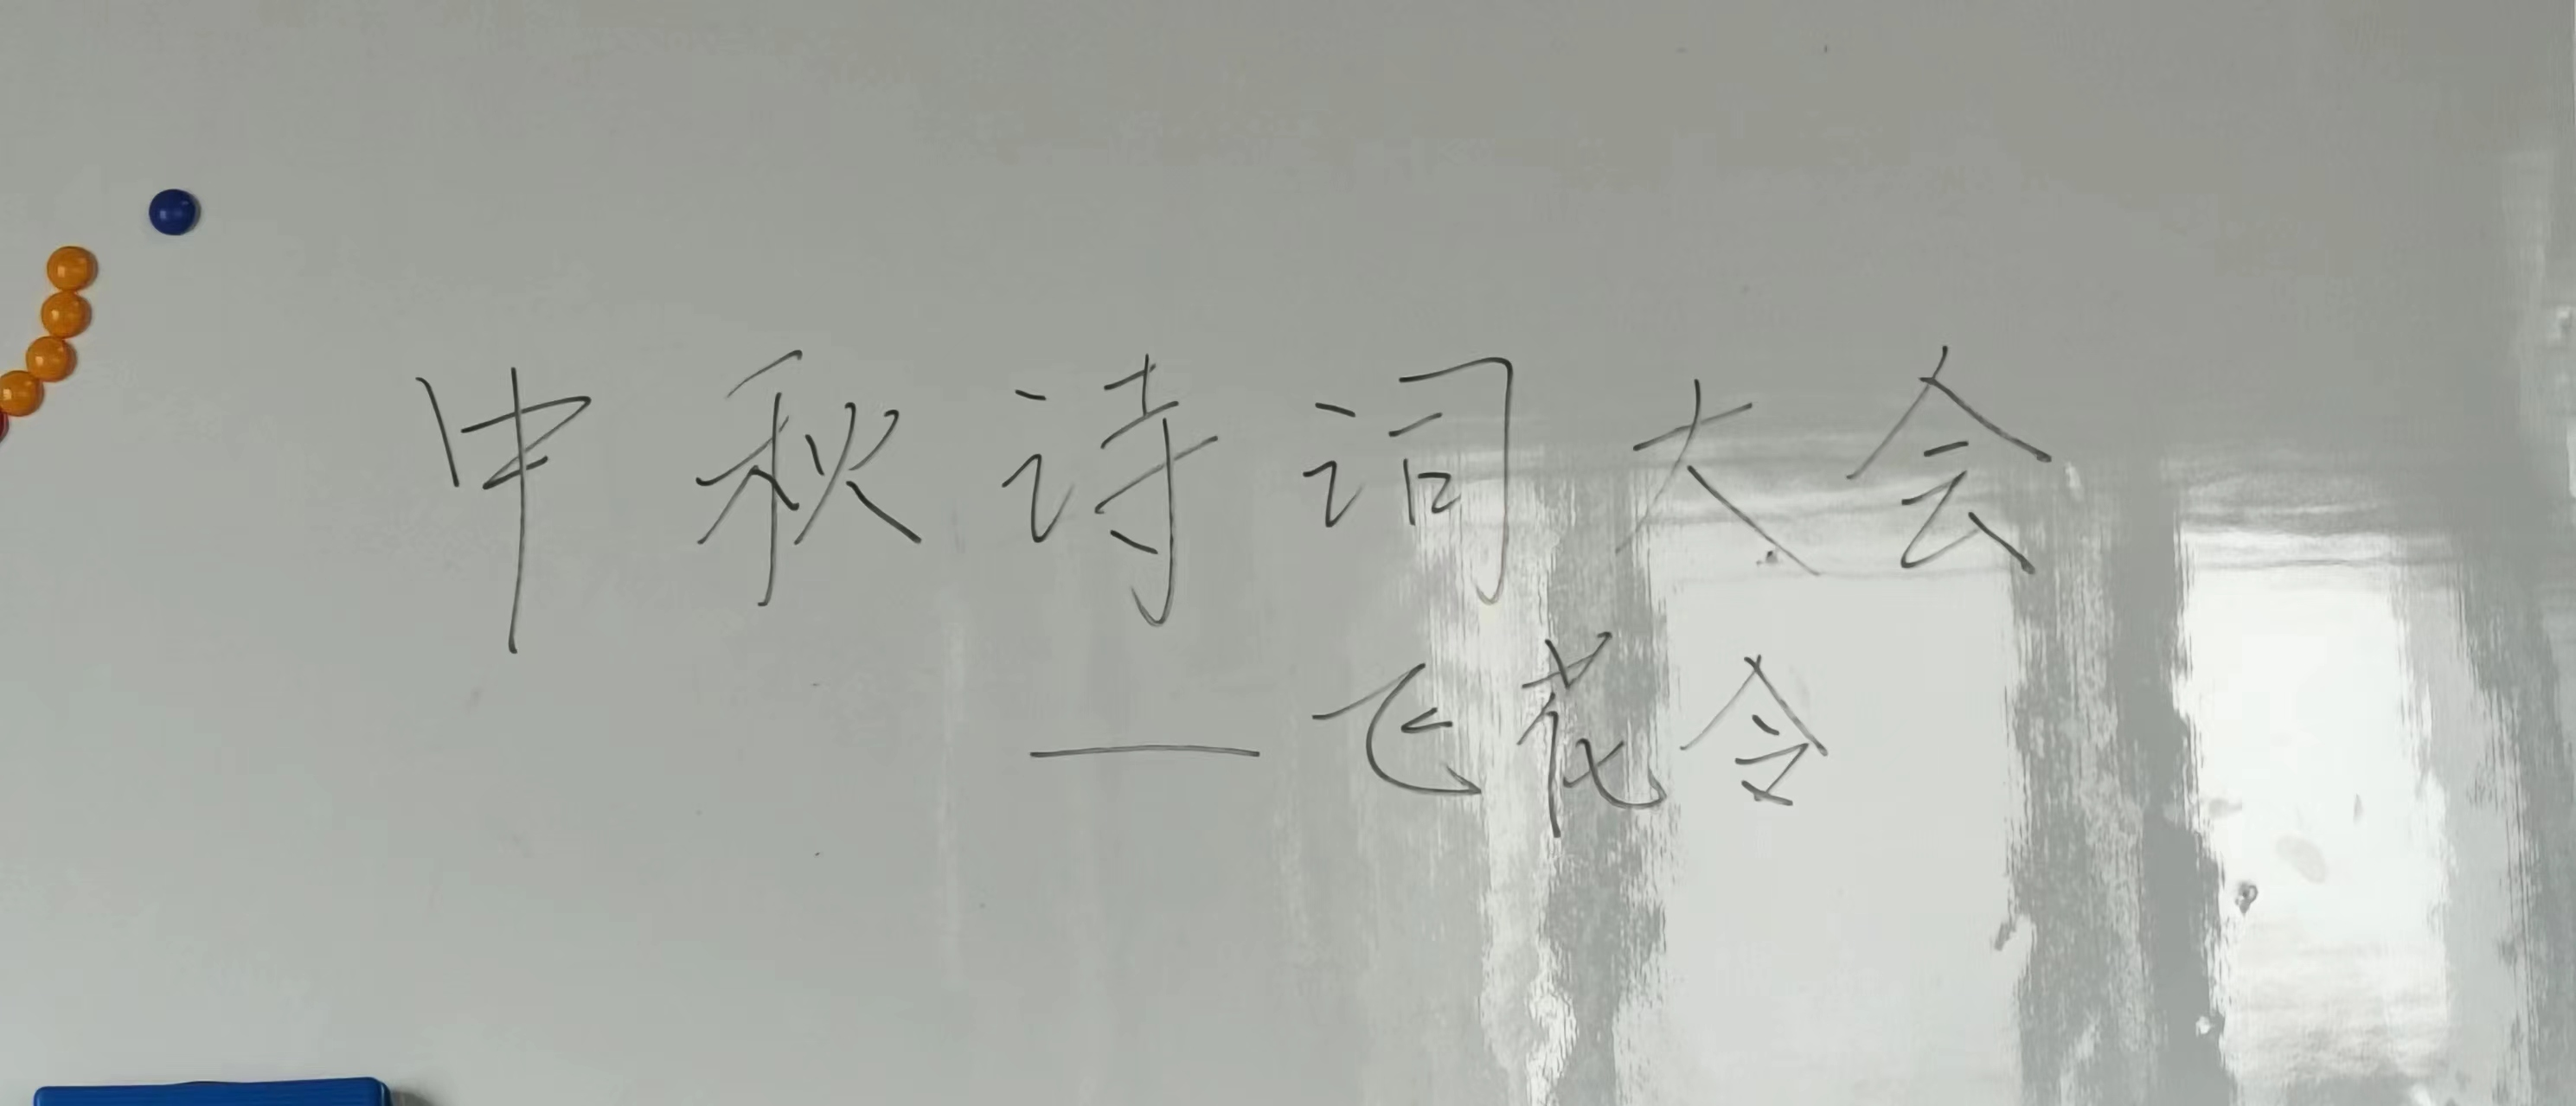 中秋诗词大会
—飞花令